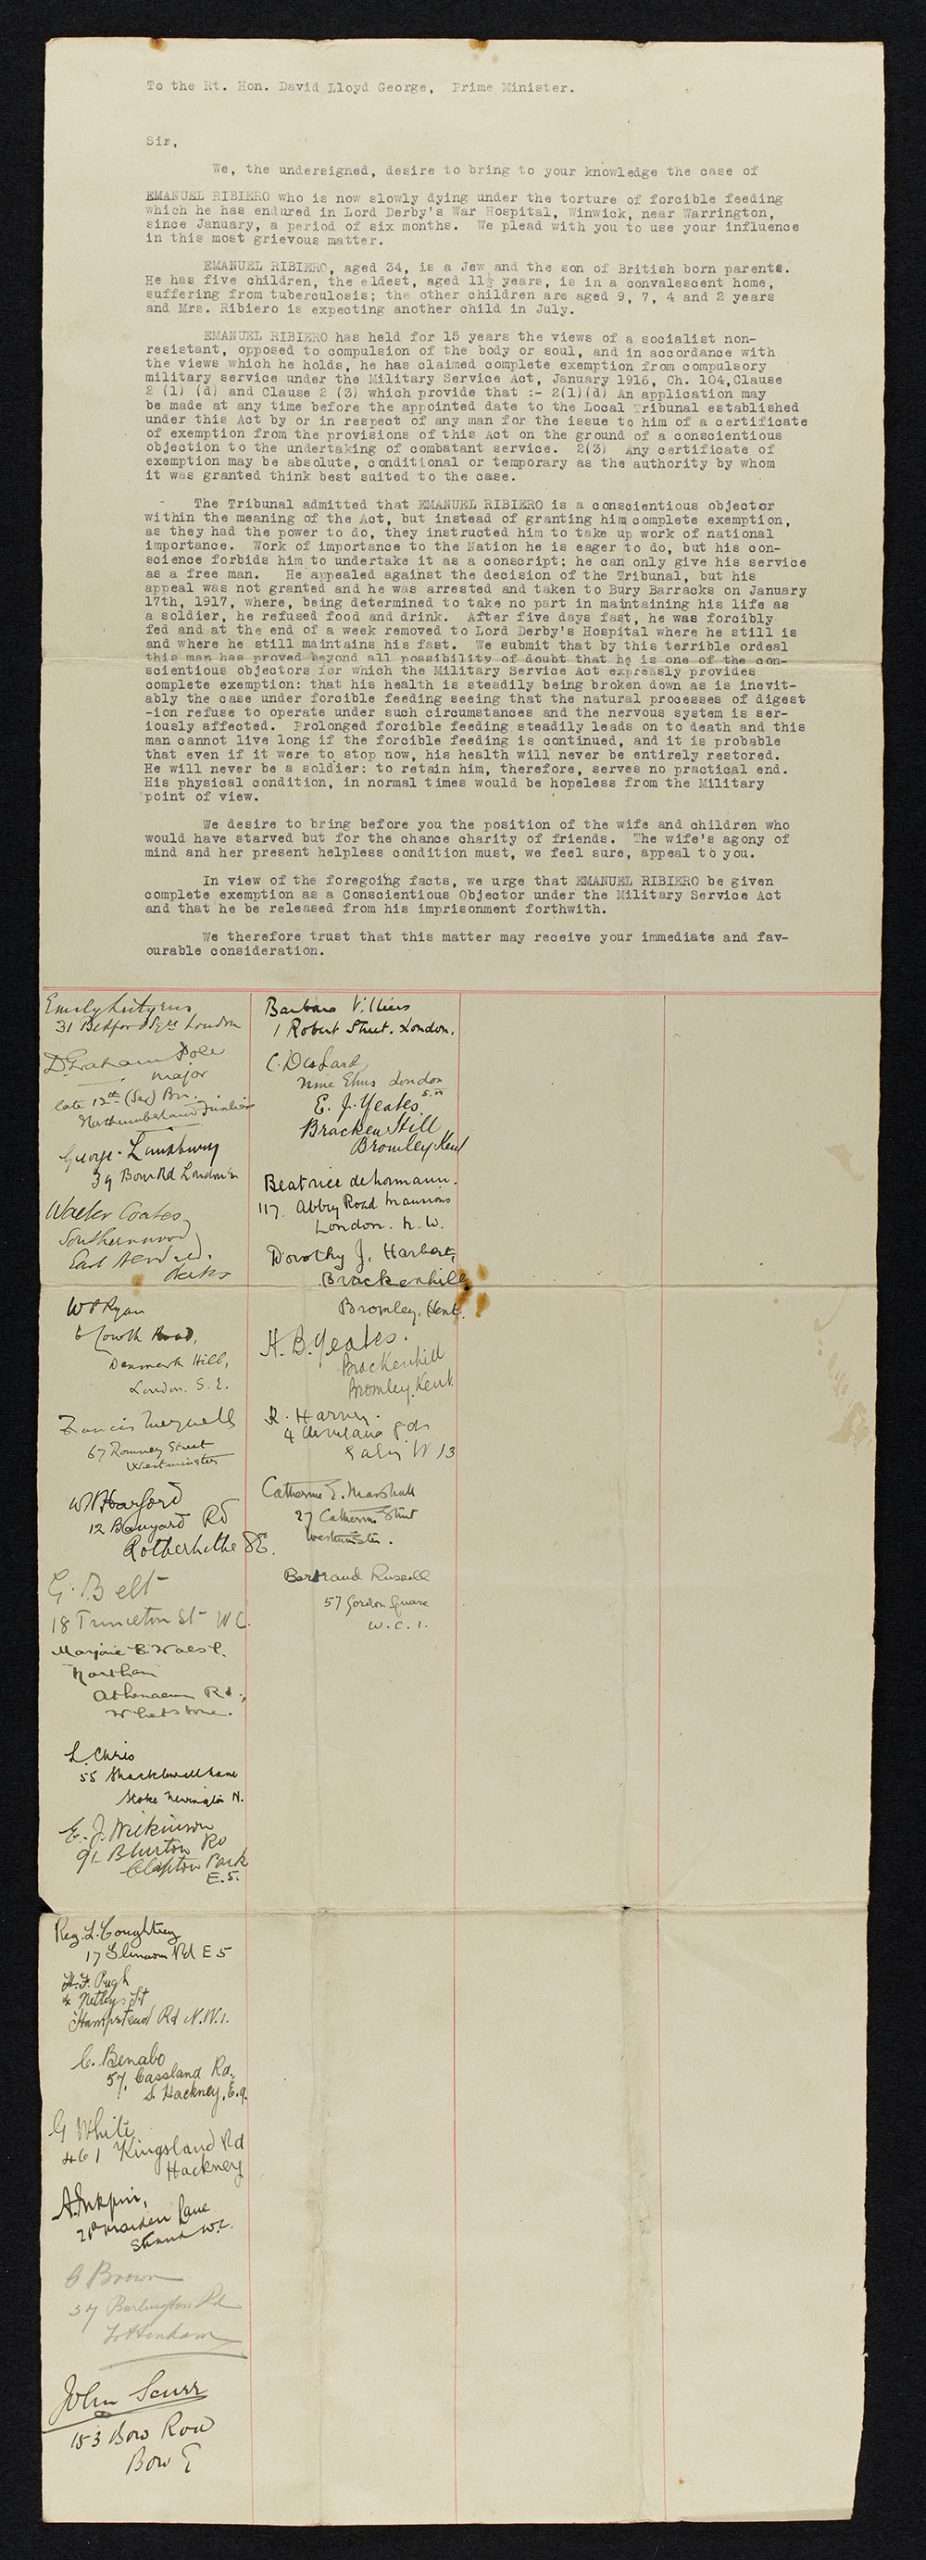 To the Rt. Hon. David Lloyd George, Prime Minister.
Sir,
We, the undersigned, desire to bring to your knowledge the case of
EMANUEL RIBIERO who is now slowly dying under the torture of forcible feeding
which he has endured in Lord Derby's War Hospital, Winwick, near Warrington,
since January, a period of six months. We plead with you to use your influence
in this most grievous matter.
EMANUEL RIBIERO, aged 34, is a Jew and the son of British born parents.
He has five children, the eldest, aged 11½ years, is in a convalescent home,
suffering from tuberculosis; the other children are aged 9, 7, 4 and 2 years
and Mrs. Ribiero is expecting another child in July.
EMANUEL RIBIERO has held for 15 years the views of a socialist non-
resistant, opposed to compulsion of the body or soul, and in accordance with
the views which he holds, he has claimed complete exemption from compulsory
military service under the Military Service Act, January 1916, Ch. 104,Clause
2 (1) (d) and Clause 2 (3) which provide that :- 2(1)(d) An application may
be made at any time before the appointed date to the Local Tribunal established
under this Act by or in respect of any man for the issue to him of a certificate
of exemption from the provisions of this Act on the ground of a conscientious
objection to the undertaking of combatant service. 2(3) Any certificate of
exemption may be absolute, conditional or temporary as the authority by whom
it was granted think best suited to the case.
The Tribunal admitted that EMANUEL RIBIERO is a conscientious objector
within the meaning of the Act, but instead of granting him complete exemption,
as they had the power to do, they instructed him to take up work of national
importance. Work of importance to the Nation he is eager to do, but his con-
science forbids him to undertake it as a conscript; he can only give his service
as a free man. He appealed against the decision of the Tribunal, but his
appeal was not granted and he was arrested and taken to Bury Barracks on January
17th, 1917, where, being determined to take no part in maintaining his life as
a soldier, he refused food and drink. After five days fast, he was forcibly
fed and at the end of a week removed to Lord Derby's Hospital where he still is
and where he still maintains his fast. We submit that by this terrible ordeal
this man has proved beyond all possibility of doubt that he is one of the con-
scientious objectors for which the Military Service Act expressly provides
complete exemption: that his health is steadily being broken down as is inevit-
ably the case under forcible feeding seeing that the natural processes of digest
-ion refuse to operate under such circumstances and the nervous system is ser-
iously affected. Prolonged forcible feeding steadily leads on to death and this
man cannot live long if the forcible feeding is continued, and it is probable
that even if it were to stop now, his health will never be entirely restored.
He will never be a soldier: to retain him, therefore, serves no practical end.
His physical condition, in normal times would be hopeless from the Military
point of view.
We desire to bring before you the position of the wife and children who
would have starved but for the chance charity of friends. The wife's agony of
mind and her present helpless condition must, we feel sure, appeal to you.
In view of the foregoing facts, we urge that EMANUEL RIBIERO be given
complete exemption as a Conscientious Objector under the Military Service Act
and that he be released from his imprisonment forthwith.
We therefore trust that this matter may receive your immediate and fav-
ourable consideration.
Emily Lutyens
31 Bedford Sqre London
D Graham Pole
Major
late 12th (Ser) Bn.
Northumberland Fusiliers
George Lansbury
39 Bow Rd London E
Walter Coates
Southernwood
East Hendred.
Berks
W P Ryan
Road,
Denmark Hill,
London. S.E.
Francis Meynell
67 Romney Street
Westminster
W Harford
12 Banyard Rd
Rotherhithe SE.
G. Belt
18 Princeton St W C.
Marjorie B.
Northam
Athenaeum Rd.,
Whetstone.
L. Chris
55 Shacklewell Lane
Stoke Newington N.
E. J. Wilkinson
91 Blurton Rd
Clapton Park
E.5.
Reg. L. Coughtrey
17 Rd E 5
H. F. Pugh
4 Netleys St
Hampstead Rd N.W.1.
C. Benabo
57, Cassland Rd,
S. Hackney, E.9.
G White
461 Kingsland Rd
Hackney
A. Inkpin,
21a Maiden Lane
Strand W.C.
Brown
37 Burlington Rd
Tottenham
John Scurr
153 Bow Road
Bow E
Barbara Villiers
1 Robert Street. London.
C. Despard
Nine Elms London
S.W
E. J. Yeates
Bracken Hill
Bromley Kent
Beatrice de Normann.
117. Abbey Road Mansions
London. N. W.
Dorothy J. Harbert,
Brackenhill
Bromley. Kent.
H. B. Yeates.
Brackenhill
Bromley. Kent
R. Harvey.
4 Rds
Ealing W 13
Catherine E. Marshall
27 Catherine Street
Westminster.
Bertrand Russell
57 Gordon Square
W.C.1.